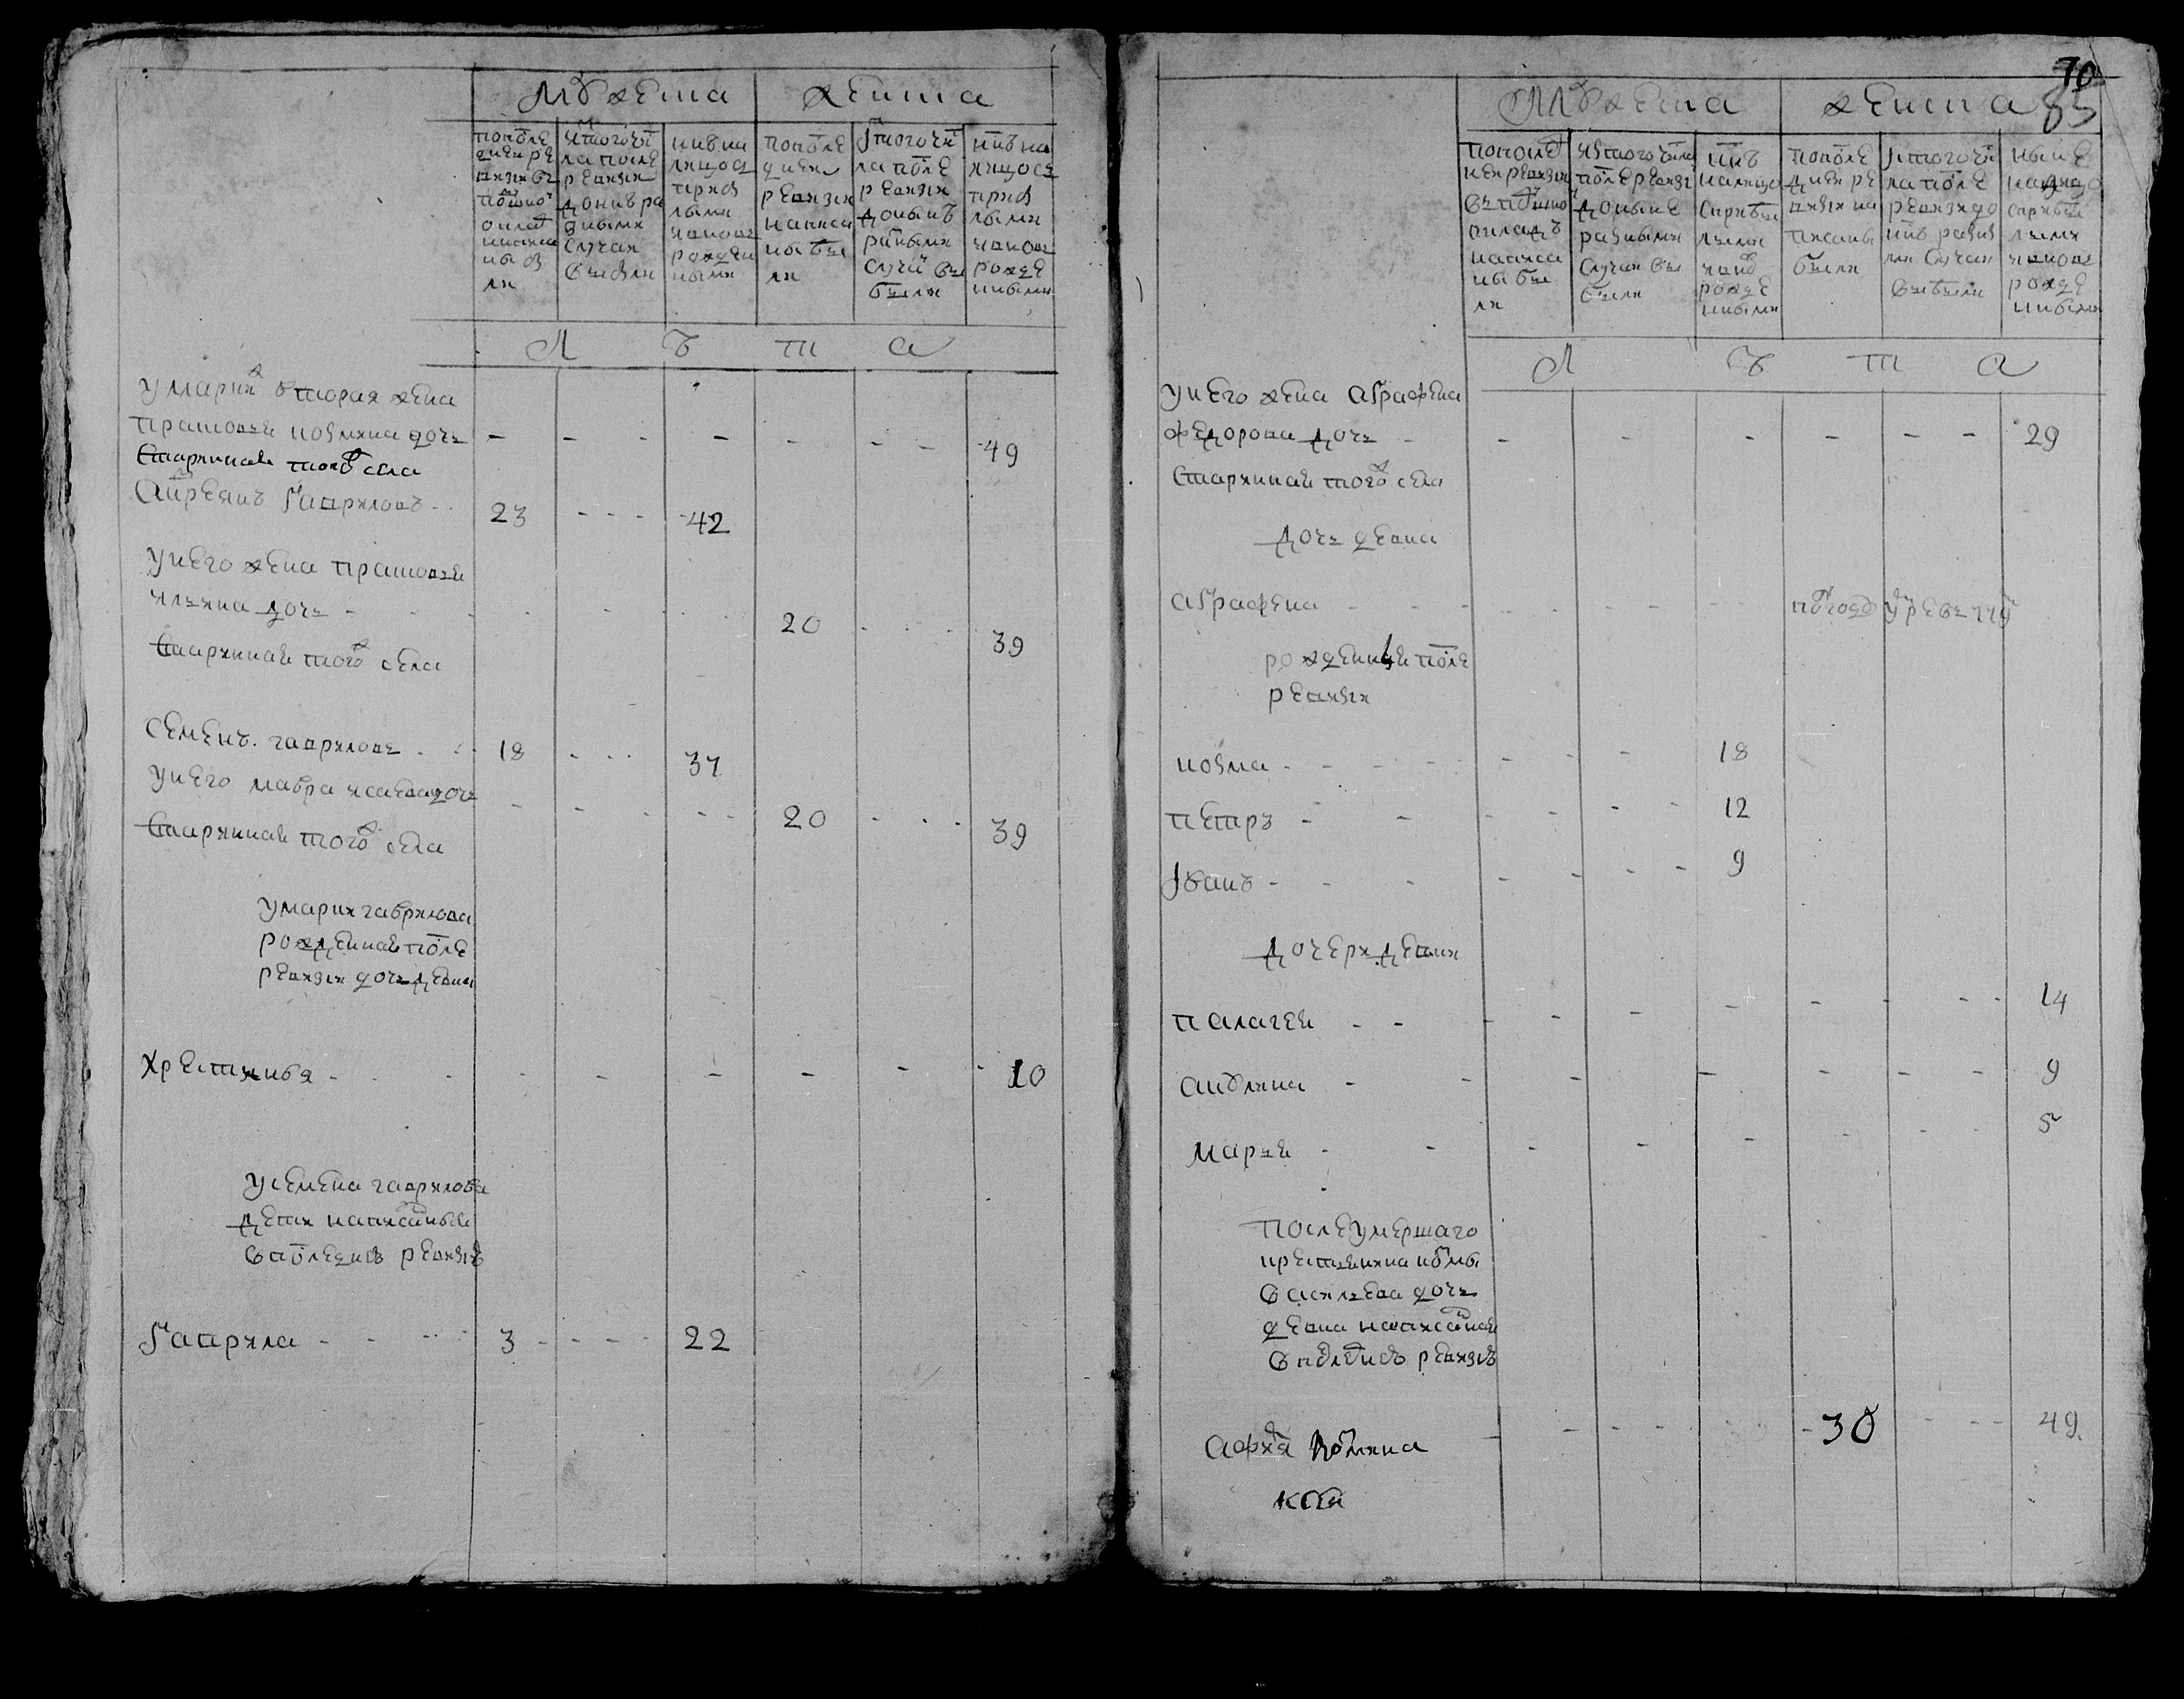 Мужеска женска
пополе
днеи ре
визiи въ
подушно
окладъ
написа
ны бы
ли
ис того чи
ла после
ревизiи
до нне ра
зными
случаи
выбыли
нне на
лицо съ
прибы
лыми
и вновь
рожден
ными
пополе
днеи
ревизiи
написа
ны бы
ли
ис того чи
ла поле
ревизiи
до ныне
разными
случаи вы
были
нне на
лицо съ
прибы
лыми
и вновь
рожде
нными
Л ѣ т а
у марки вторая жена
прасковья козмина дочь - - - - - - - 49
старинная того ж села
Андреянъ Гавриловъ 23 - - - 42
у него жена прасковья
ильина дочь - 20 39
старинная того ж села
Семенъ гавриловъ 18 - - - 37
у него мавра исаева дочь - - - - - 20 - - - 39
старинная того ж села
у марки гаврилова
рожденная после
ревизiи дочь девка
Хрестинья - - - - - - - 10
у семена гаврилова
дети написанные
в последней ревизiи
Гаврила - - - 3 - - - 22
70
85
Мужеска женска
по послед
неи ревизiи
въ подушно
окладъ
написа
ны бы
ли
ис того числа
после ревизi
до ныне
разными
случаи вы
были
нне
налицо
с прибы
лыми
и внов
рожде
нными
пополе
днеи ре
визiи на
писаны
были
ис того чи
ла после
ревизiи до
нне разны
ми случаи
выбыли
ныне
налицо
с прибы
лыми
и вновь
рожде
нными
Л ѣ т а
у него жена аграфена
федорова дочь - - - - - - - 29
старинная того ж села
дочь девка
аграфена - - - - - - -
рожденныя после
ревизiи
козма - - - - - - - 18
петръ - - - - - 12
Iванъ - - - - - - 9
дочери девки
палагея - - - - - - - - - - 14
анулина - - - - - - - 9
марья - - - - - - - - 5
после умершаго
крестьянина козмы
васильева дочь
девка написанная
в последней ревизiи
Афимья козмина - - - - - 30 - - - 49